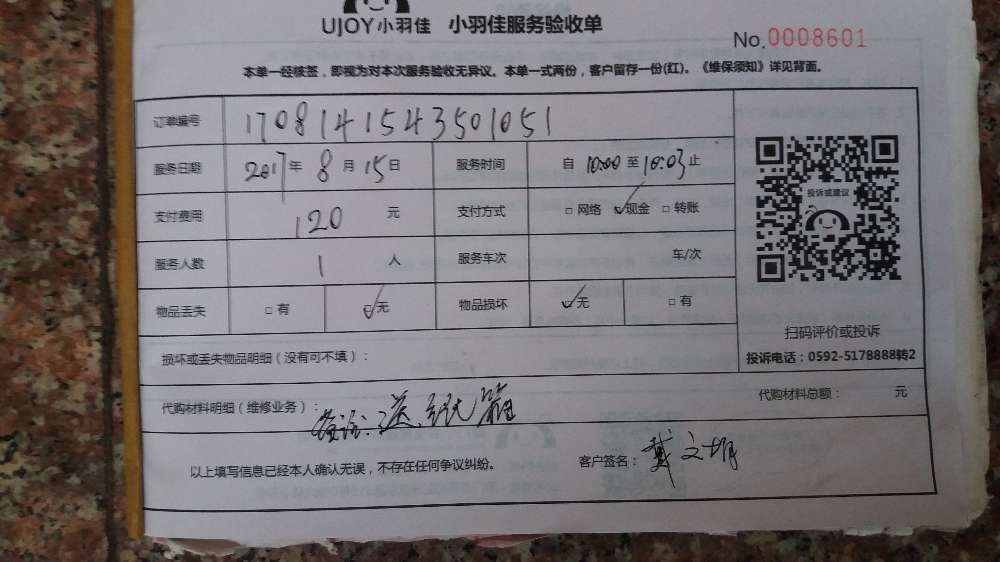 UJOY小羽佳 小羽佳服务验收单
No.0008601
本单一经核签，即视为对本次服务验收无异议。本单一式两份，客户留存一份(红)。《维保须知》详见背面。
订单编号 1708141543501051
服务日期 2017年 8月 15日 服务时间 自 10:00 至 10:03 止
投诉或建议
支付费用 120 元 支付方式 □ 网络 ☑现金 □ 转账
服务人数 1 人 服务车次 车/次
物品丢失 □ 有 ☑无 物品损坏 ☑无 □ 有
扫码评价或投诉
投诉电话：0592-5178888转2
损坏或丢失物品明细（没有可不填）：
代购材料明细（维修业务）： 备注：送 纸箱
代购材料总额： 元
以上填写信息已经本人确认无误，不存在任何争议纠纷。 客户签名：戴文